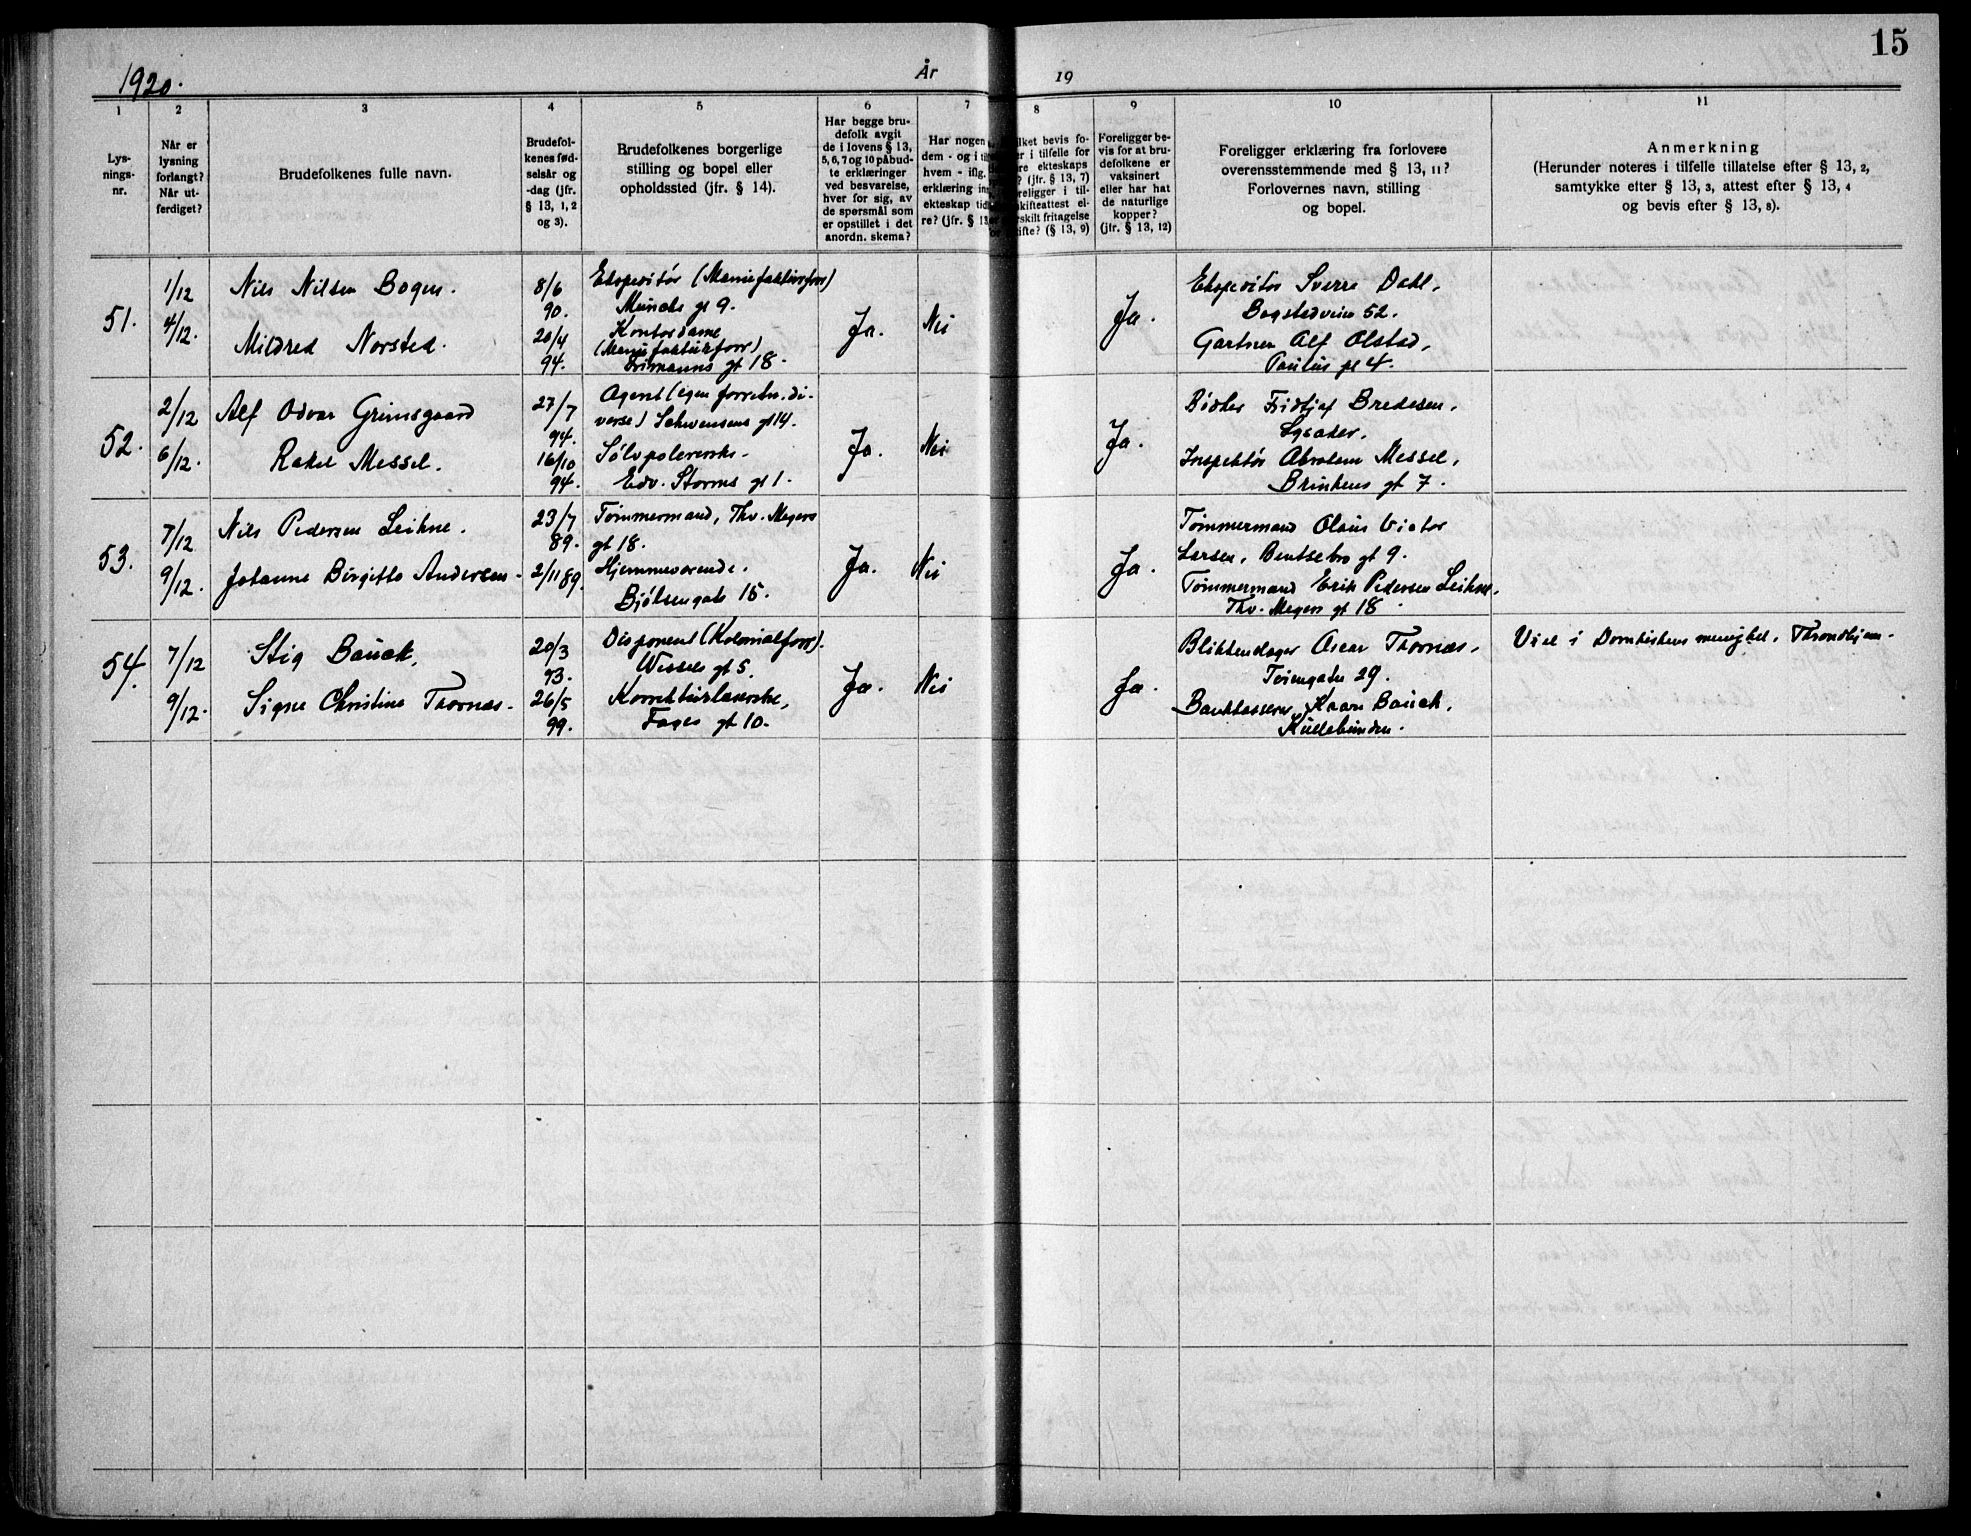 15
1920.
År
19
1 2 3 4 5 6 7 8 9 10 11
Lys-
nings-
nr.
Når er
lysning
forlangt?
Når ut-
ferdiget?
Brudefolkenes fulle navn.
Brudefol-
kenes fød-
selsår og
-dag (jfr.
§ 13, 1, 2
og 3).
Brudefolkenes borgerlige
stilling og bopel eller
opholdssted (jfr. § 14).
Har begge bru-
defolk avgit
de i lovens § 13,
5, 6, 7 og 10 påbud-
te erklæringer
ved besvarelse,
hver for sig, av
de spørsmål som
er opstillet i det
anordn. skema?
Har nogen
dem - og i
hvem - iflg.
erklæring
ekteskap tid
re? (jfr. § 13
lket bevis fo-
r i tilfelle for
re ekteskaps
? (jfr. § 13, 7)
religger i til-
kifteattest el-
rskilt fritagelse
ifte? (§ 13, 9)
Foreligger be-
vis for at bru-
defolkene er
vaksinert
eller har hat
de naturlige
kopper?
(jfr. § 13, 12)
Foreligger erklæring fra forlovere
overensstemmende med § 13, 11?
Forlovernes navn, stilling
og bopel.
Anmerkning
(Herunder noteres i tilfelle tillatelse efter § 13, 2,
samtykke efter § 13, 3, attest efter § 13, 4
og bevis efter § 13, 8).
51.
1/12
4/12.
Nils Nilsen Bogen.
Mildred Norsted.
8/6
90.
20/4
94.
Ekspeditør (Manufakturforr)
Munchs gt 9.
Kontordame
(Manufakturforr)
gt 18.
Ja.
Nei
Ja.
Ekspeditør Sverre Dahl,
Bogstadveien 52.
Gartner Alf Olstad,
Paulus pl 4.
52.
2/12
6/12.
Alf Odvar Grimsgaard
Rakel Messel.
27/7
94.
16/10
94.
Agent (egen forretn. di-
verse) Schwensens gt 14.
Sølvpolererske.
Edv. Storms gt 1.
Ja.
Nei
Ja.
Bødker Fridtjof Bredesen,
Lysaker.
Inspektør Abraham Messel,
Brinkens gt 7.
53.
7/12
9/12.
Nils Pedersen Leikne.
Johanne Birgitte Andersen.
23/7
89.
2/11 89.
Tømmermand, Thv. Meyers
gt 18.
Hjemmeværende.
Bjølsengata 15.
Ja.
Nei
Ja.
Tømmermand Olaus Victor
Larsen, Bentsebro gt 9.
Tømmermand Erik Pedersen Leikne,
Thv. Meyers gt 18.
54.
7/12
9/12.
Stig Bauck,
Signe Christine Thornæs.
20/3
93.
26/5
99.
Disponent (Kolonialforr).
Wessels gt 5.
Korrekturlæserske,
Fages gt 10.
Ja.
Nei
Ja.
Blikkenslager Oscar Thornæs,
Tøiengaten 29.
Bankkasserer Kaare Bauck,
Kullebunden.
Viel i Domkirkens menighet, Throndhjem.